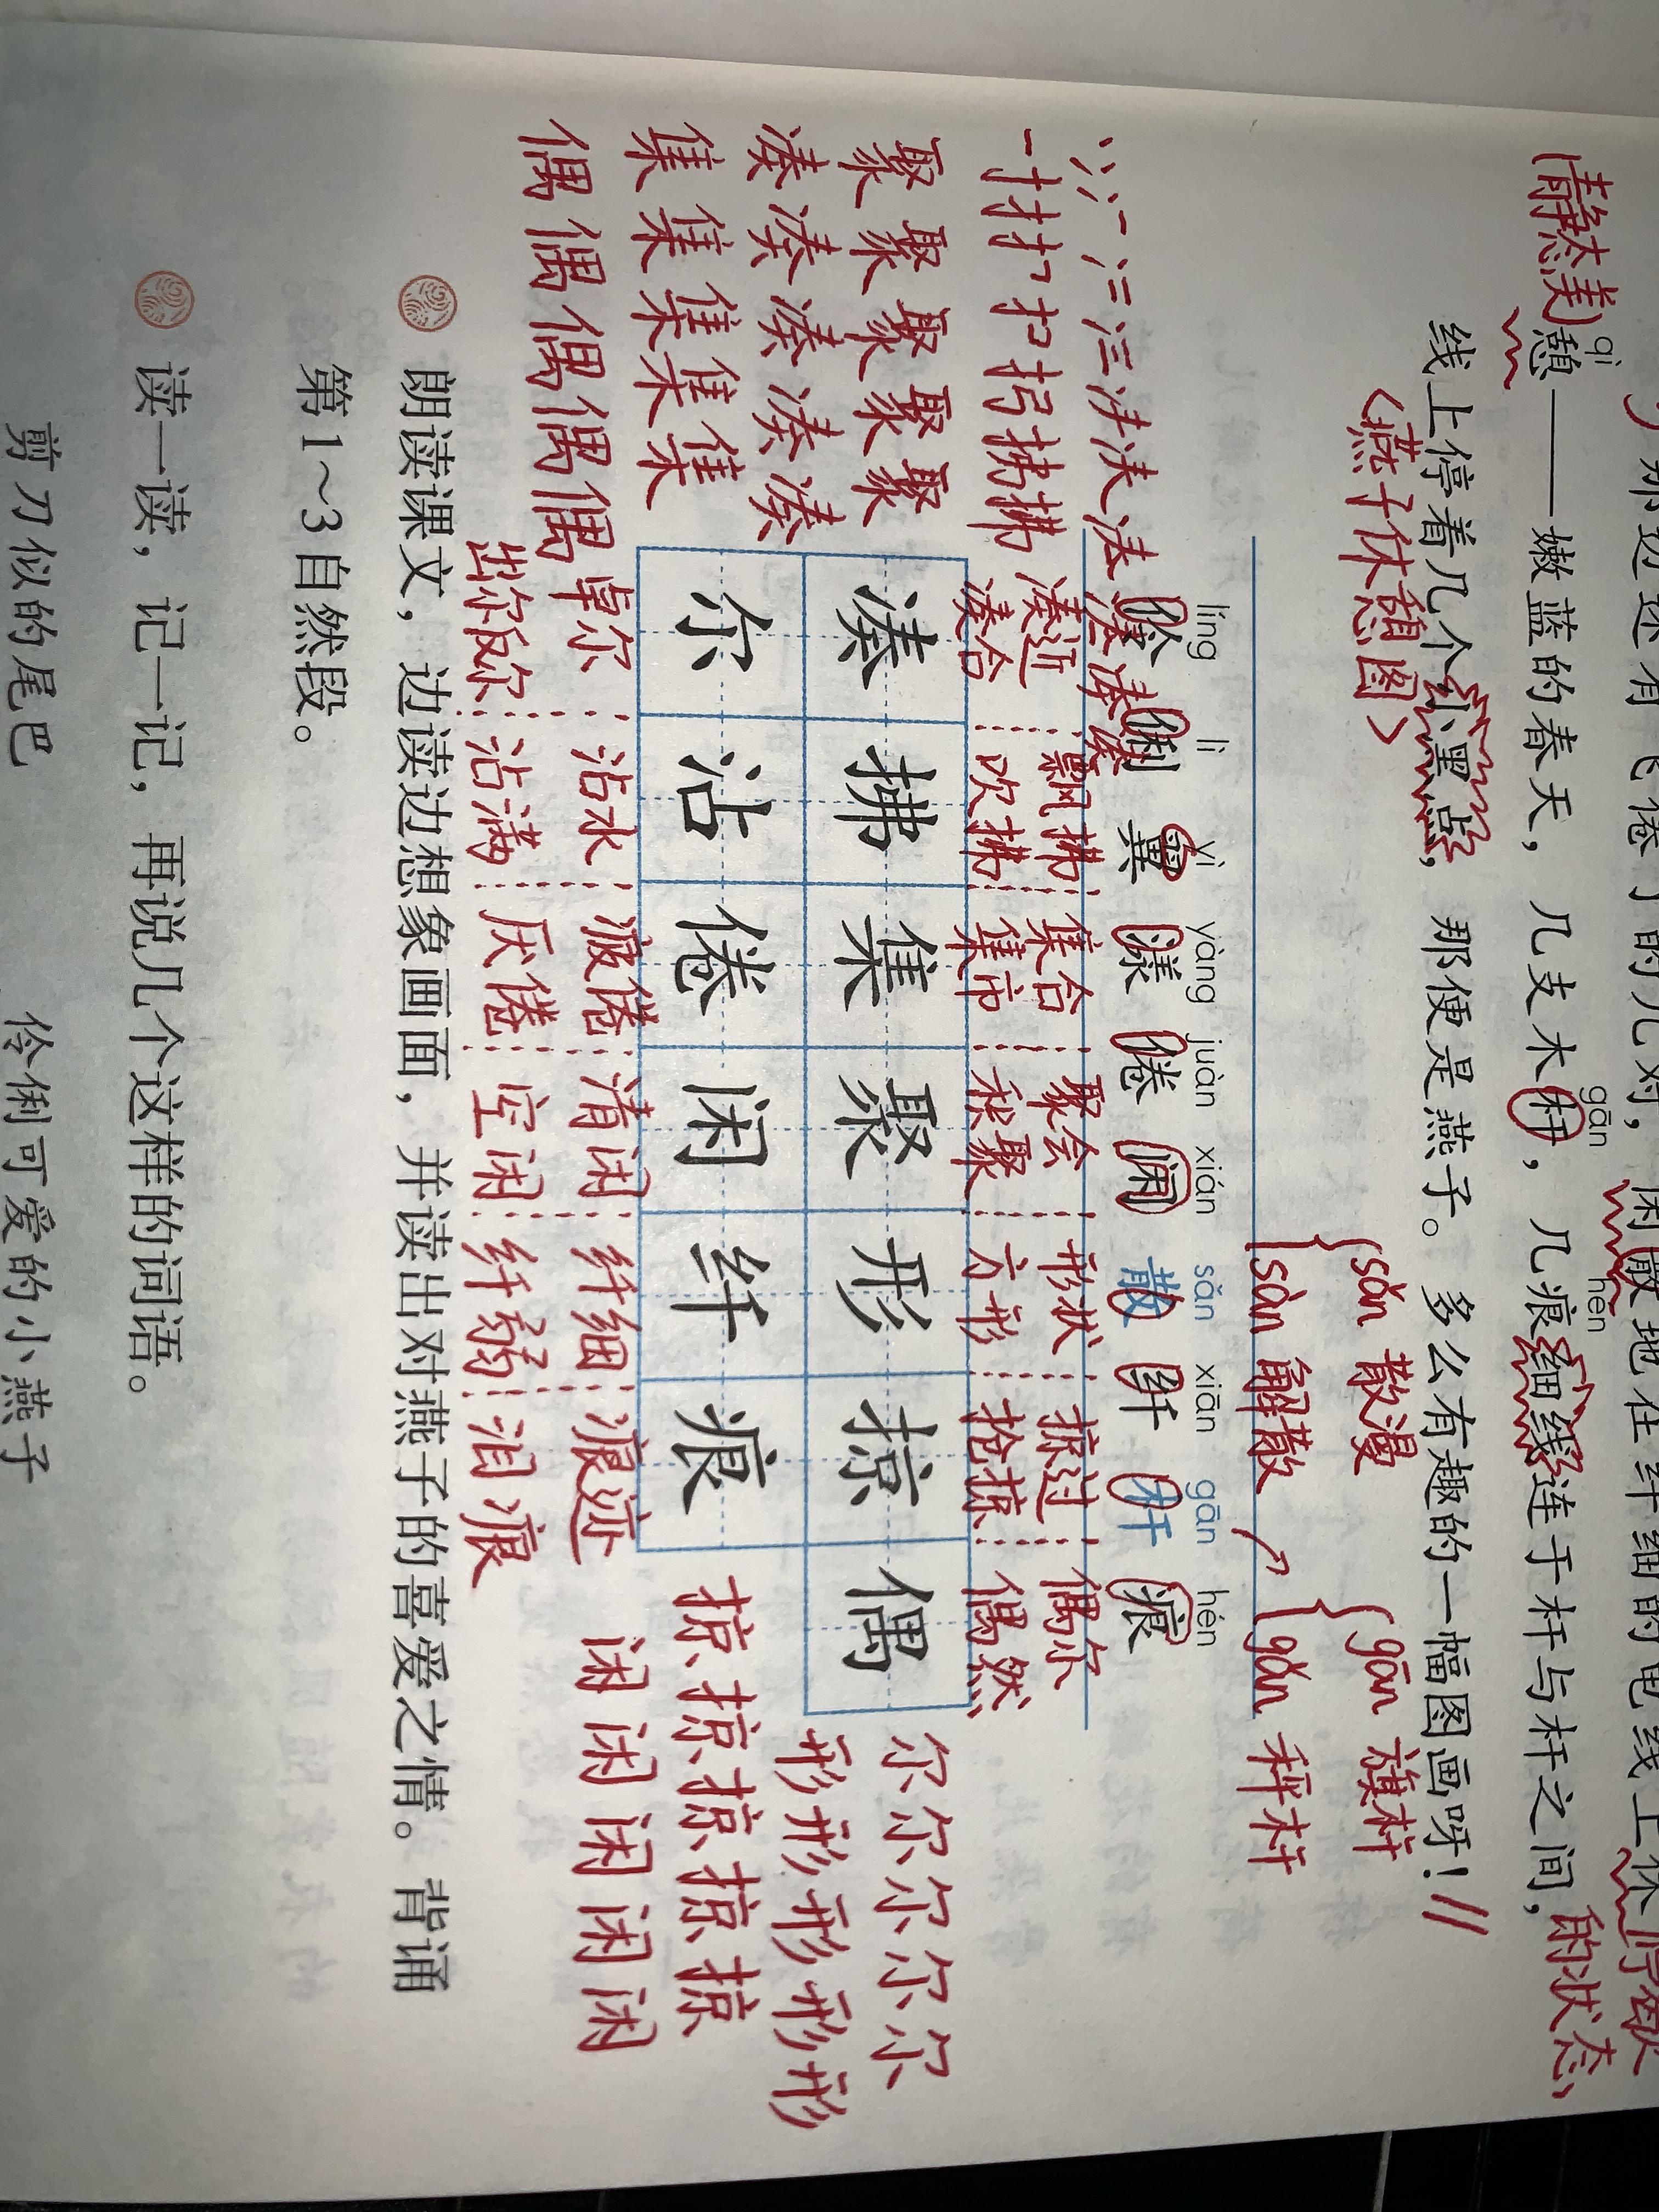 那边还有飞倦了的几对，闲散地在纤细的电线上休
停歇
的状态
(静态美)
qì hén gān
憩——嫩蓝的春天，几支木杆，几痕细线连于杆与杆之间，
线上停着几个小黑点，那便是燕子。多么有趣的一幅图画呀！//
<燕子休憩图>
sǎn 散漫
sàn 解散
gān 旗杆
gǎn 秤杆
líng lì yì yàng juàn xián sǎn xiān gān hén
伶 俐 翼 漾 倦 闲 散 纤 杆 痕
凑近 飘拂 集合 聚会 形状 掠过 偶尔
凑合 吹拂 集市 积聚 方形 抢掠 偶然
凑 拂 集 聚 形 掠 偶
尔 沾 倦 闲 纤 痕
卓尔 沾水 疲倦 清闲 纤细 痕迹
出尔反尔 沾满 厌倦 空闲 纤弱 泪痕
聚 聚 聚 聚 聚
凑 凑 凑 凑 凑
集 集 集 集
偶 偶 偶 偶 偶
尔 尔 尔 尔 尔
形 形 形 形 形
掠 掠 掠 掠 掠
闲 闲 闲 闲 闲
朗读课文，边读边想象画面，并读出对燕子的喜爱之情。背诵
第1～3自然段。
读一读，记一记，再说几个这样的词语。
剪刀似的尾巴 伶俐可爱的小燕子